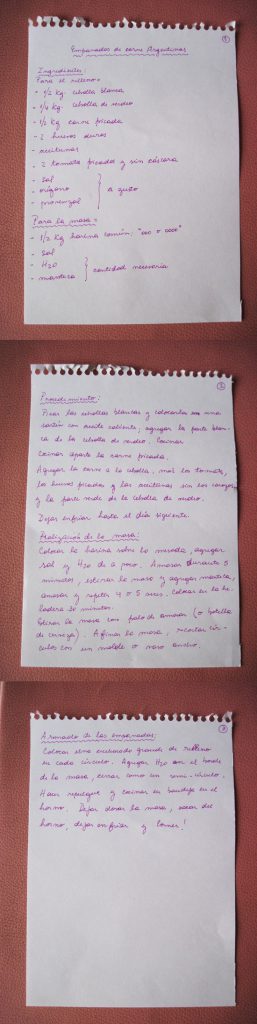 ①
Empanadas de carne Argentinas
Ingredientes:
Para el relleno=
- 1/2 kg. cebolla blanca
- 1/4 kg. cebolla de verdeo
- 1/2 kg carne picada
- 2 huevos duros
- aceitunas
- 2 tomates picados y sin cáscara
- sal
- orégano } a gusto
- provenzal
Para la masa=
- 1/2 kg harina común, "000 o 0000"
- Sal
- H2O } cantidad necesaria
- manteca
②
Procedimiento:
Picar las cebollas blancas y colocarlas en una
sartén con aceite caliente, agregar la parte blan-
ca de la cebolla de verdeo. Cocinar
Cocinar aparte la carne picada.
Agregar la carne a la cebolla, más los tomates,
los huevos picados y las aceitunas sin los carozos
y la parte verde de la cebolla de verdeo.
Dejar enfriar hasta el día siguiente.
Realización de la masa:
Colocar la harina sobre la mesada, agregar
sal y H2O de a poco. Amasar durante 5
minutos, estirar la masa y agregar manteca,
amasar y repetir 4 o 5 veces. Colocar en la he-
ladera 30 minutos.
Estirar la masa con palo de amasar (o botella
de cerveza). Afinar la masa, recortar cír-
culos con un molde o vaso ancho.
③
Armado de las empanadas:
Colocar una cucharada grande de relleno
en cada círculo. Agregar H2O en el borde
de la masa, cerrar como un semi-círculo.
Hacer repulgue y cocinar en bandeja en el
horno. Dejar dorar la masa, sacar del
horno, dejar enfriar y Comer!